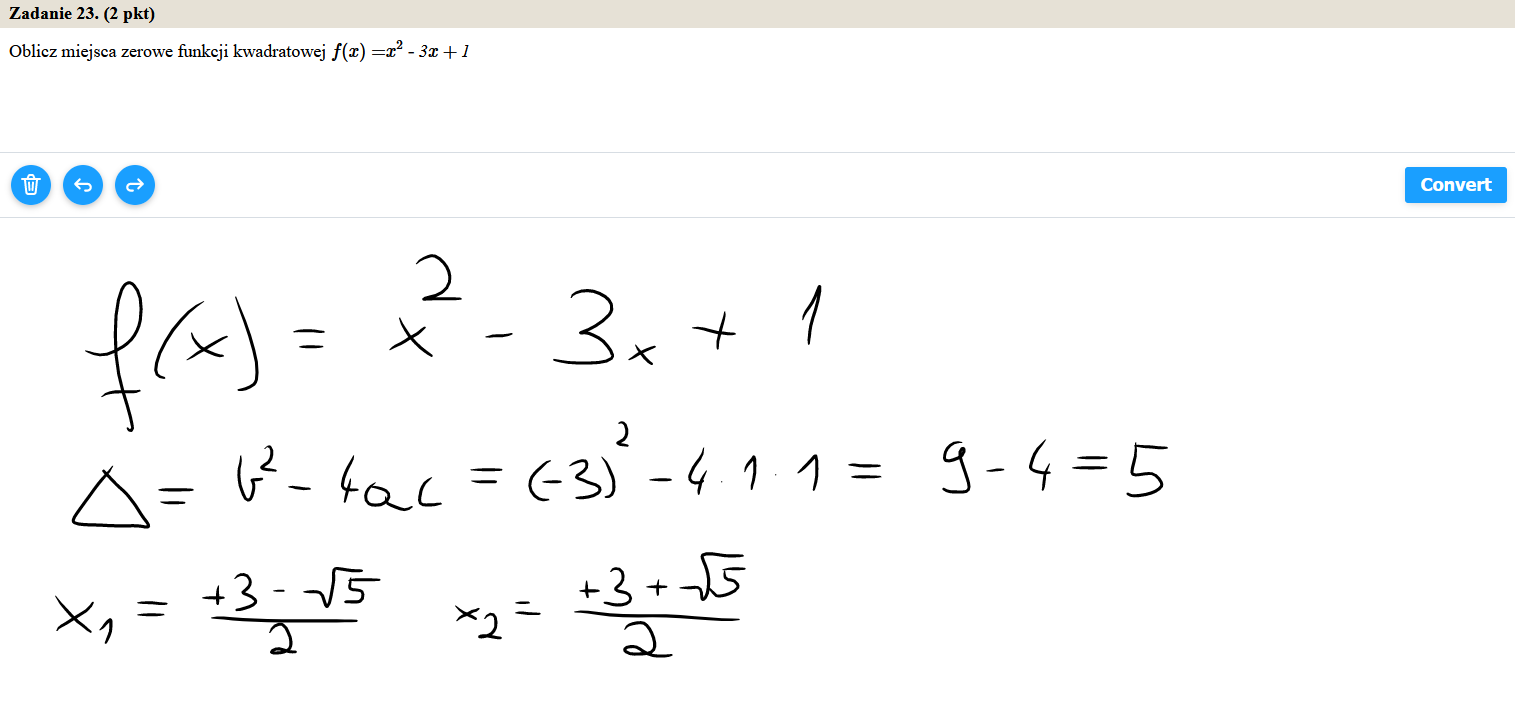 Zadanie 23. (2 pkt)
Oblicz miejsca zerowe funkcji kwadratowej f(x) =x² - 3x + 1
Convert
f(x) = x² - 3x + 1
Δ = b² - 4ac = (-3)² - 4 · 1 · 1 = 9 - 4 = 5
x₁ = (+3 - √5)/2 x₂ = (+3 + √5)/2